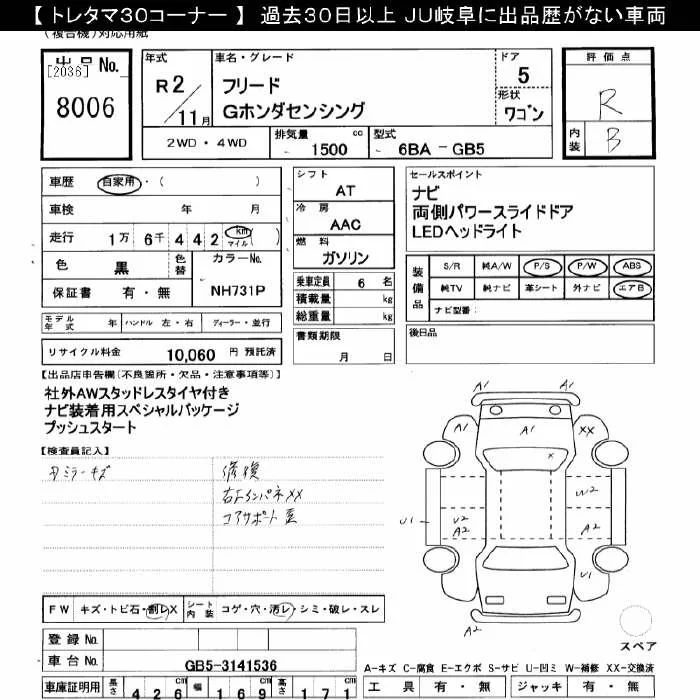 【 トレタマ30コーナー 】 過去30日以上 JU岐阜に出品歴がない車両
(複合機)対応用紙
出品 No.
[2036]
8006
年式
R 2/11月
車名・グレード
フリード
Gホンダセンシング
ドア
5
形状
ワゴン
評価点
R
内装
B
2WD・4WD
排気量
1500 cc
型式
6BA - GB5
車歴 自家用・( )
車検 年 月
走行 1万 6千 4 4 2 km マイル ( )
色 黒 色替 カラーNo.
保証書 有・無 NH731P
モデル年式 年 ハンドル 左・右 ディーラー・並行
リサイクル料金 10,060 円 預託済
シフト
AT
冷房
AAC
燃料
ガソリン
乗車定員 6 名
積載量 kg
総重量 kg
書類期限
月 日
セールスポイント
ナビ
両側パワースライドドア
LEDヘッドライト
装備品
S/R 純A/W P/S P/W ABS
純TV 純ナビ 革シート 外ナビ エアB
ナビ型番:
後日品
【出品店申告欄(不良箇所・欠品・注意事項等)】
社外AWスタッドレスタイヤ付き
ナビ装着用スペシャルパッケージ
プッシュスタート
【検査員記入】
ミラーキズ
修復
右上インパネXX
コアサポート
A1 A1
A1 A1 XX
x
W2
U1 U2 A2 A2
U1
A2
スペア
FW キズ・トビ石・割レX シート内装 コゲ・穴・汚レ・シミ・破レ・スレ
登録 No.
車台 No. GB5-3141536
車庫証明用 長さ 4 2 6 cm 幅 1 6 9 cm 高さ 1 7 1 cm
A-キズ C-腐食 E-エクボ S-サビ U-凹ミ W-補修 XX-交換済
工具 有・無 ジャッキ 有・無